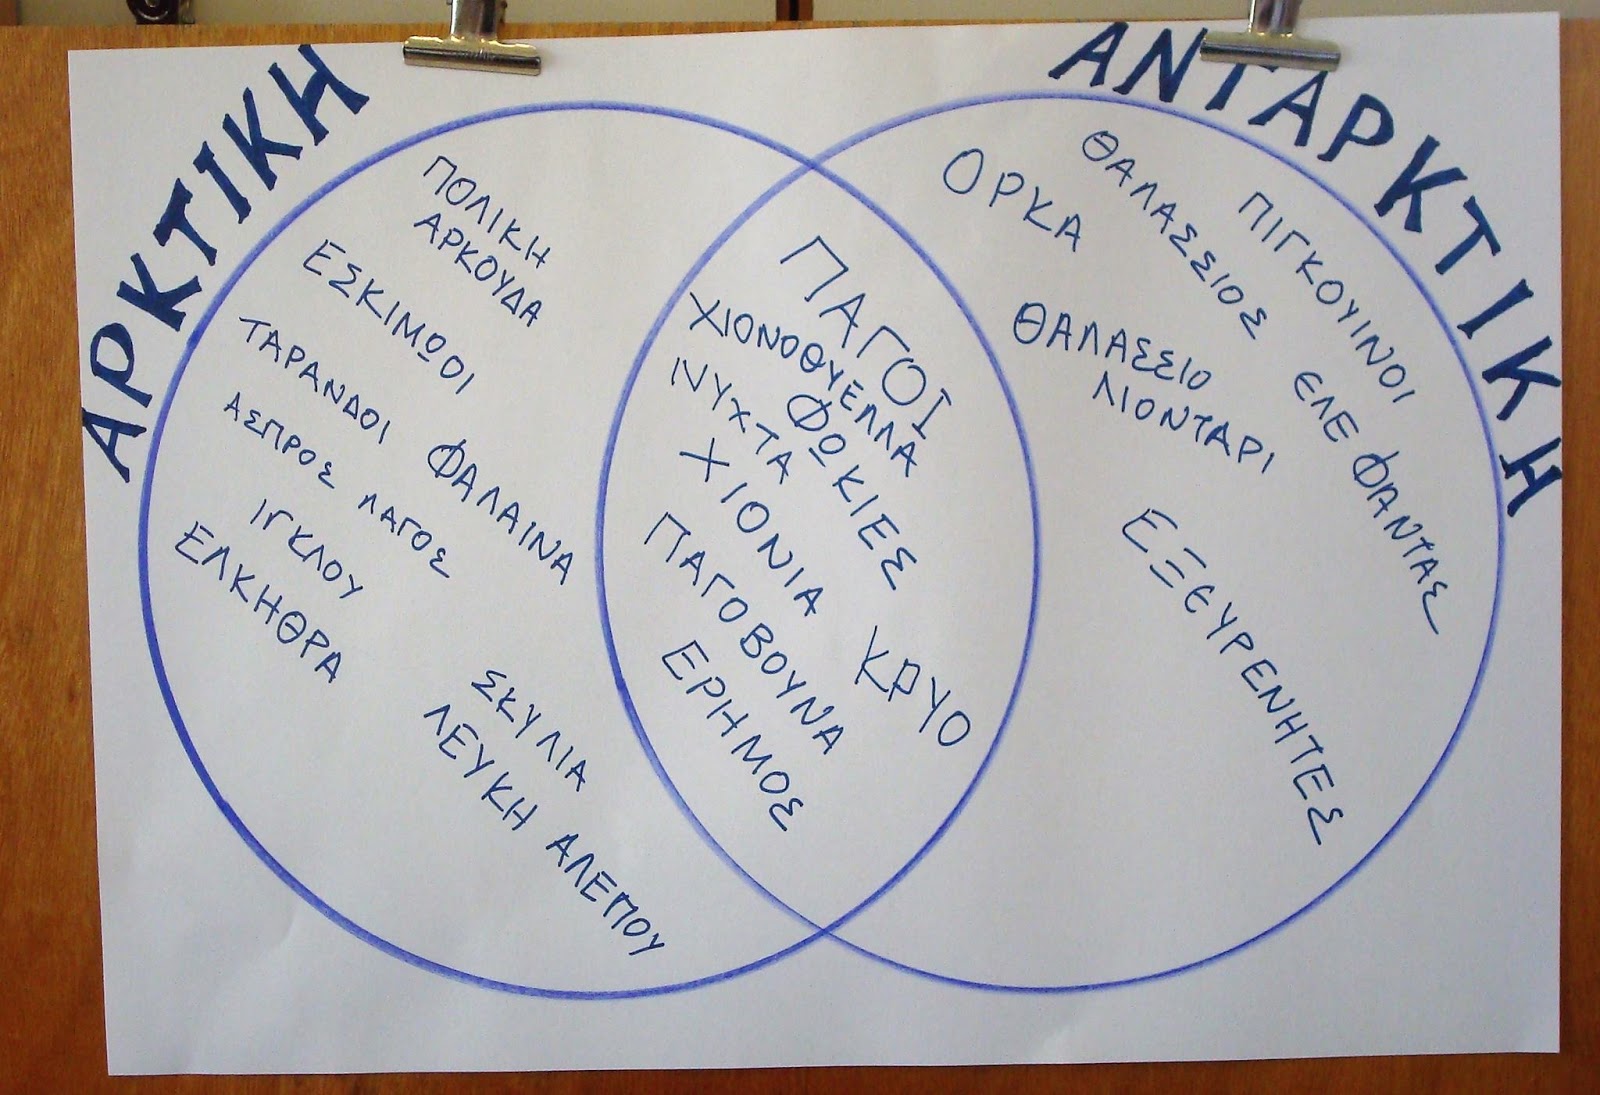 ΑΡΚΤΙΚΗ
ΠΟΛΙΚΗ
ΑΡΚΟΥΔΑ
ΕΣΚΙΜΩΟΙ
ΤΑΡΑΝΔΟΙ
ΦΑΛΑΙΝΑ
ΑΣΠΡΟΣ ΛΑΓΟΣ
ΙΓΚΛΟΥ
ΕΛΚΗΘΡΑ
ΣΚΥΛΙΑ
ΛΕΥΚΗ ΑΛΕΠΟΥ
ΠΑΓΟΙ
ΧΙΟΝΟΘΥΕΛΛΑ
ΦΩΚΙΕΣ
ΝΥΧΤΑ
ΧΙΟΝΙΑ
ΚΡΥΟ
ΠΑΓΟΒΟΥΝΑ
ΕΡΗΜΟΣ
ΑΝΤΑΡΚΤΙΚΗ
ΟΡΚΑ
ΘΑΛΑΣΣΙΟΣ ΕΛΕΦΑΝΤΑΣ
ΠΙΓΚΟΥΙΝΟΙ
ΘΑΛΑΣΣΙΟ
ΛΙΟΝΤΑΡΙ
ΕΞΕΥΡΕΝΗΤΕΣ